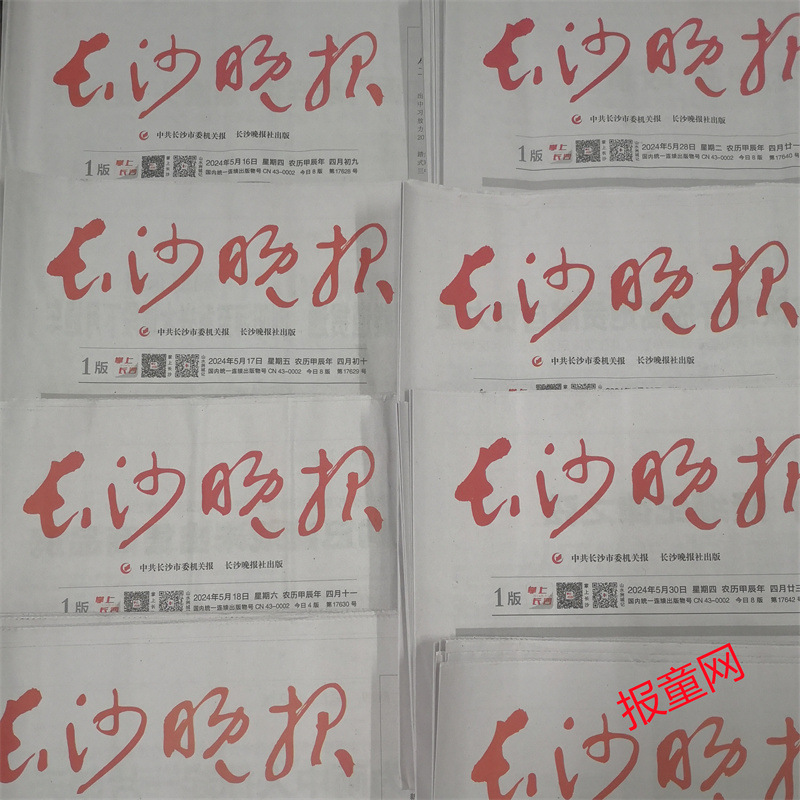 长沙晚报
中共长沙市委机关报 长沙晚报社出版
1版 掌上长沙 2024年5月16日 星期四 农历甲辰年 四月初九
国内统一连续出版物号 CN 43-0002 今日8版 第17628号
长沙晚报
中共长沙市委机关报 长沙晚报社出版
1版 掌上长沙 2024年5月28日 星期二 农历甲辰年 四月廿一
国内统一连续出版物号 CN 43-0002 今日8版 第17640号
长沙晚报
中共长沙市委机关报 长沙晚报社出版
1版 掌上长沙 2024年5月17日 星期五 农历甲辰年 四月初十
国内统一连续出版物号 CN 43-0002 今日8版 第17629号
长沙晚报
中共长沙市委机关报 长沙晚报社出版
长沙晚报
中共长沙市委机关报 长沙晚报社出版
1版 掌上长沙 2024年5月18日 星期六 农历甲辰年 四月十一
国内统一连续出版物号 CN 43-0002 今日4版 第17630号
长沙晚报
中共长沙市委机关报 长沙晚报社出版
1版 掌上长沙 2024年5月30日 星期四 农历甲辰年 四月廿三
国内统一连续出版物号 CN 43-0002 今日8版 第17642号
长沙晚报
长沙晚报
报童网